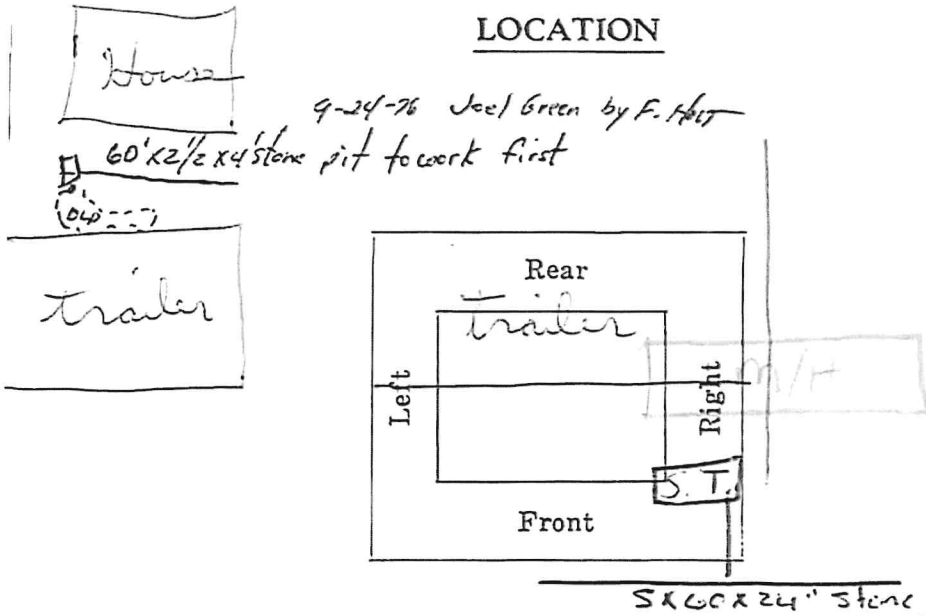 LOCATION
House
9-24-76 Joel Green by F. Holt
60' X 2 1/2 X 4' stone pit to work first
OLD
trailer
Rear
trailer
Left
Right
M/H
S. T.
Front
5 X 60 X 24" stone